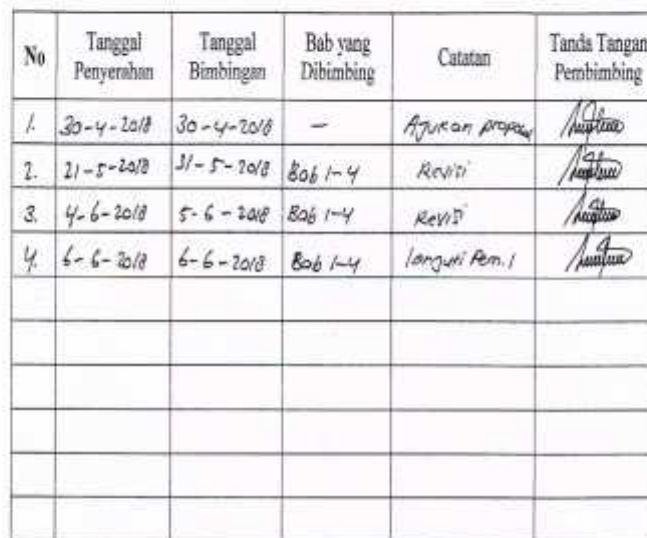 No Tanggal Penyerahan Tanggal Bimbingan Bab yang Dibimbing Catatan Tanda Tangan Pembimbing
1. 30-4-2018 30-4-2018 — Ajukan proposal
2. 21-5-2018 31-5-2018 Bab 1-4 Revisi
3. 4-6-2018 5-6-2018 Bab 1-4 Revisi
4. 6-6-2018 6-6-2018 Bab 1-4 lanjuti Pem. 1